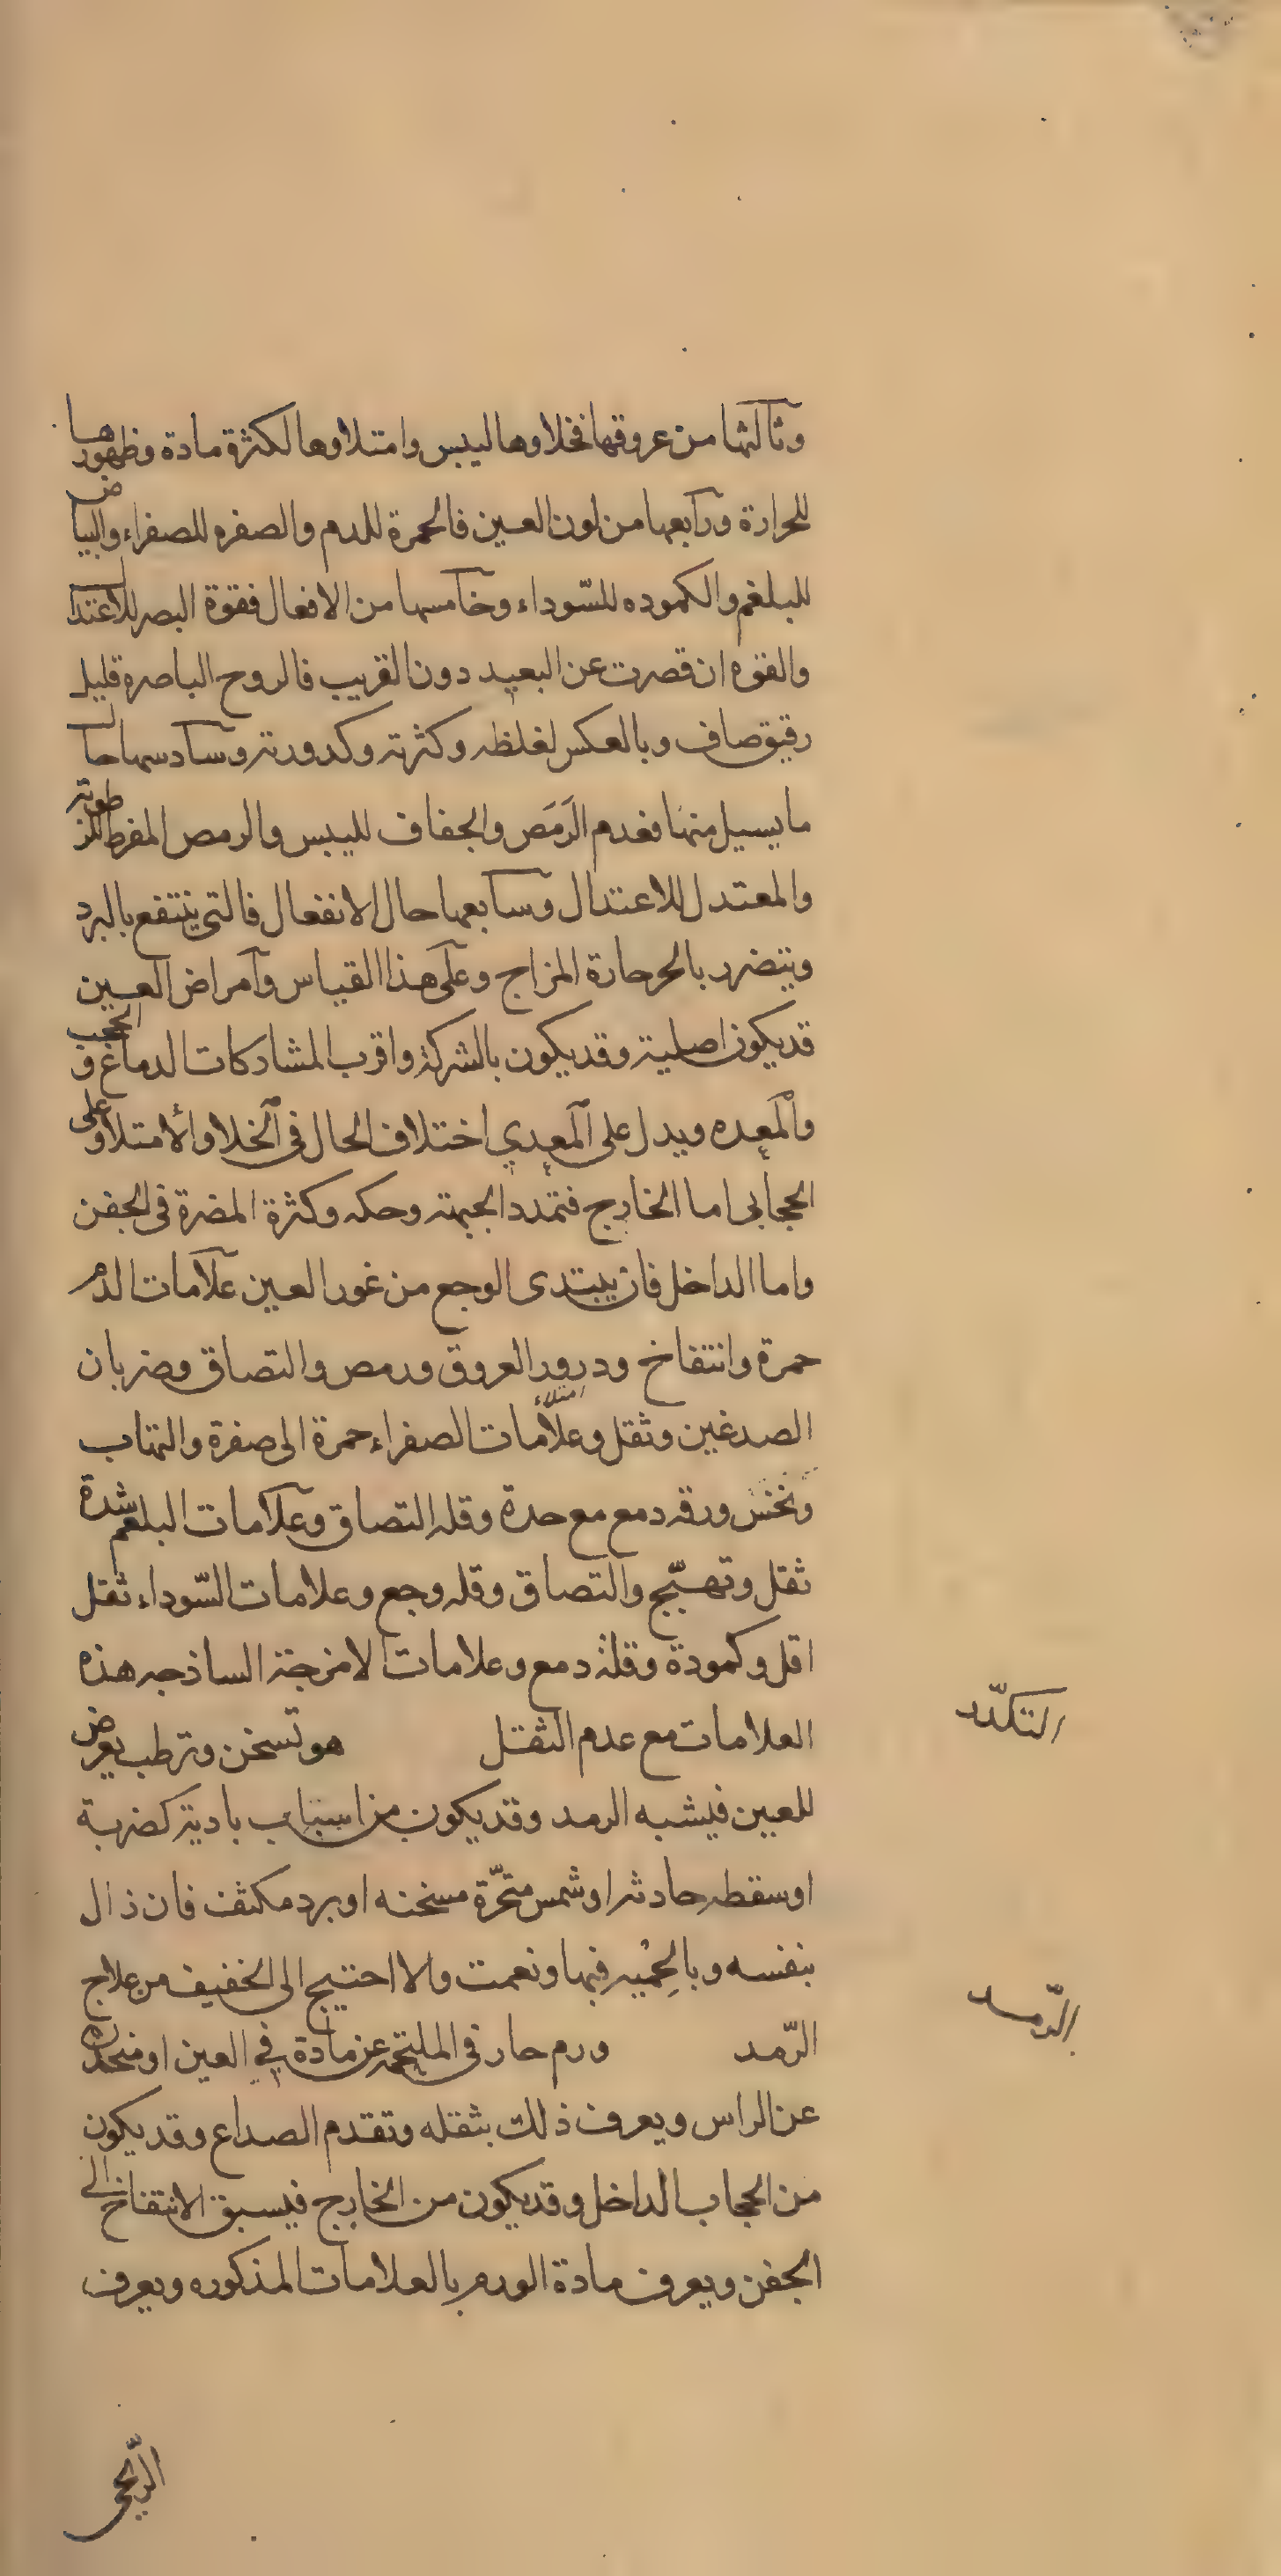 وثالثها من عروقها فخلاوها لليبس وامتلاوها لكثرة مادة وظهورها
للحرارة ورابعها من لون العين فالحمرة للدم والصفره للصفراء والبياض
للبلغم والكموده للسّوداء وخامسها من الافعال فقوة البصر للاعتدال
والقوه ان قصرت عن البعيد دون القريب فالروح الباصره قليل
رقيق صاف وبالعكس لغلظه وكثرته وكدورته وسادسها حال
ما يسيل منها فعدم الرَمَص والجفاف لليبس والرمص المفرط للرطوبة
والمعتدل للاعتدال وسابعها حال الانفعال فالتي ينتفع بالبرد
ويتضرر بالحر حارة المزاج وعلى هذا القياس وامراض العين
قد يكون اصلية وقد يكون بالشركة واقرب المشاركات الدماغ والحجب
والمعده ويدل على المعدي اختلاف الحال في الخلا والامتلا وعلى
الحجابي اما الخارج فتمدد الجبهة وحكه وكثرة المضرة في الجفن
واما الداخل فان يبتدى الوجع من غور العين علامات الدم
حمرة وانتفاخ ودرور العروق ورمص والتصاق وضربان
الصدغين وثقل وعلامات الصفراء حمرة الى صفرة والتهاب
ونخس ورقه دمع مع حدة وقله التصاق وعلامات البلغم شدة
ثقل وتهيّج والتصاق وقله وجع وعلامات السّوداء ثقل
اقل وكمودة وقلة دمع وعلامات الامزجة الساذجه هذه
التكدّر
العلامات مع عدم الثقل هو تسخن وترطب يعرض
للعين فيشبه الرمد وقد يكون من اسباب بادية كضربة
او سقطه حادثه او شمس مسخنه او برد مكثف فان زال
بنفسه وبالحمية فبها ونعمت والا احتيج الى الخفيف من علاج
الرّمد
الرّمد ورم حار في الملتحم عن مادة في العين او منحدره
عن الراس ويعرف ذلك بثقله وتقدم الصداع وقد يكون
من الحجاب الداخل وقد يكون من الخارج فيسبق الانتفاخ الى
الجفن ويعرف مادة الورم بالعلامات المذكوره ويعرف
الرّيحي